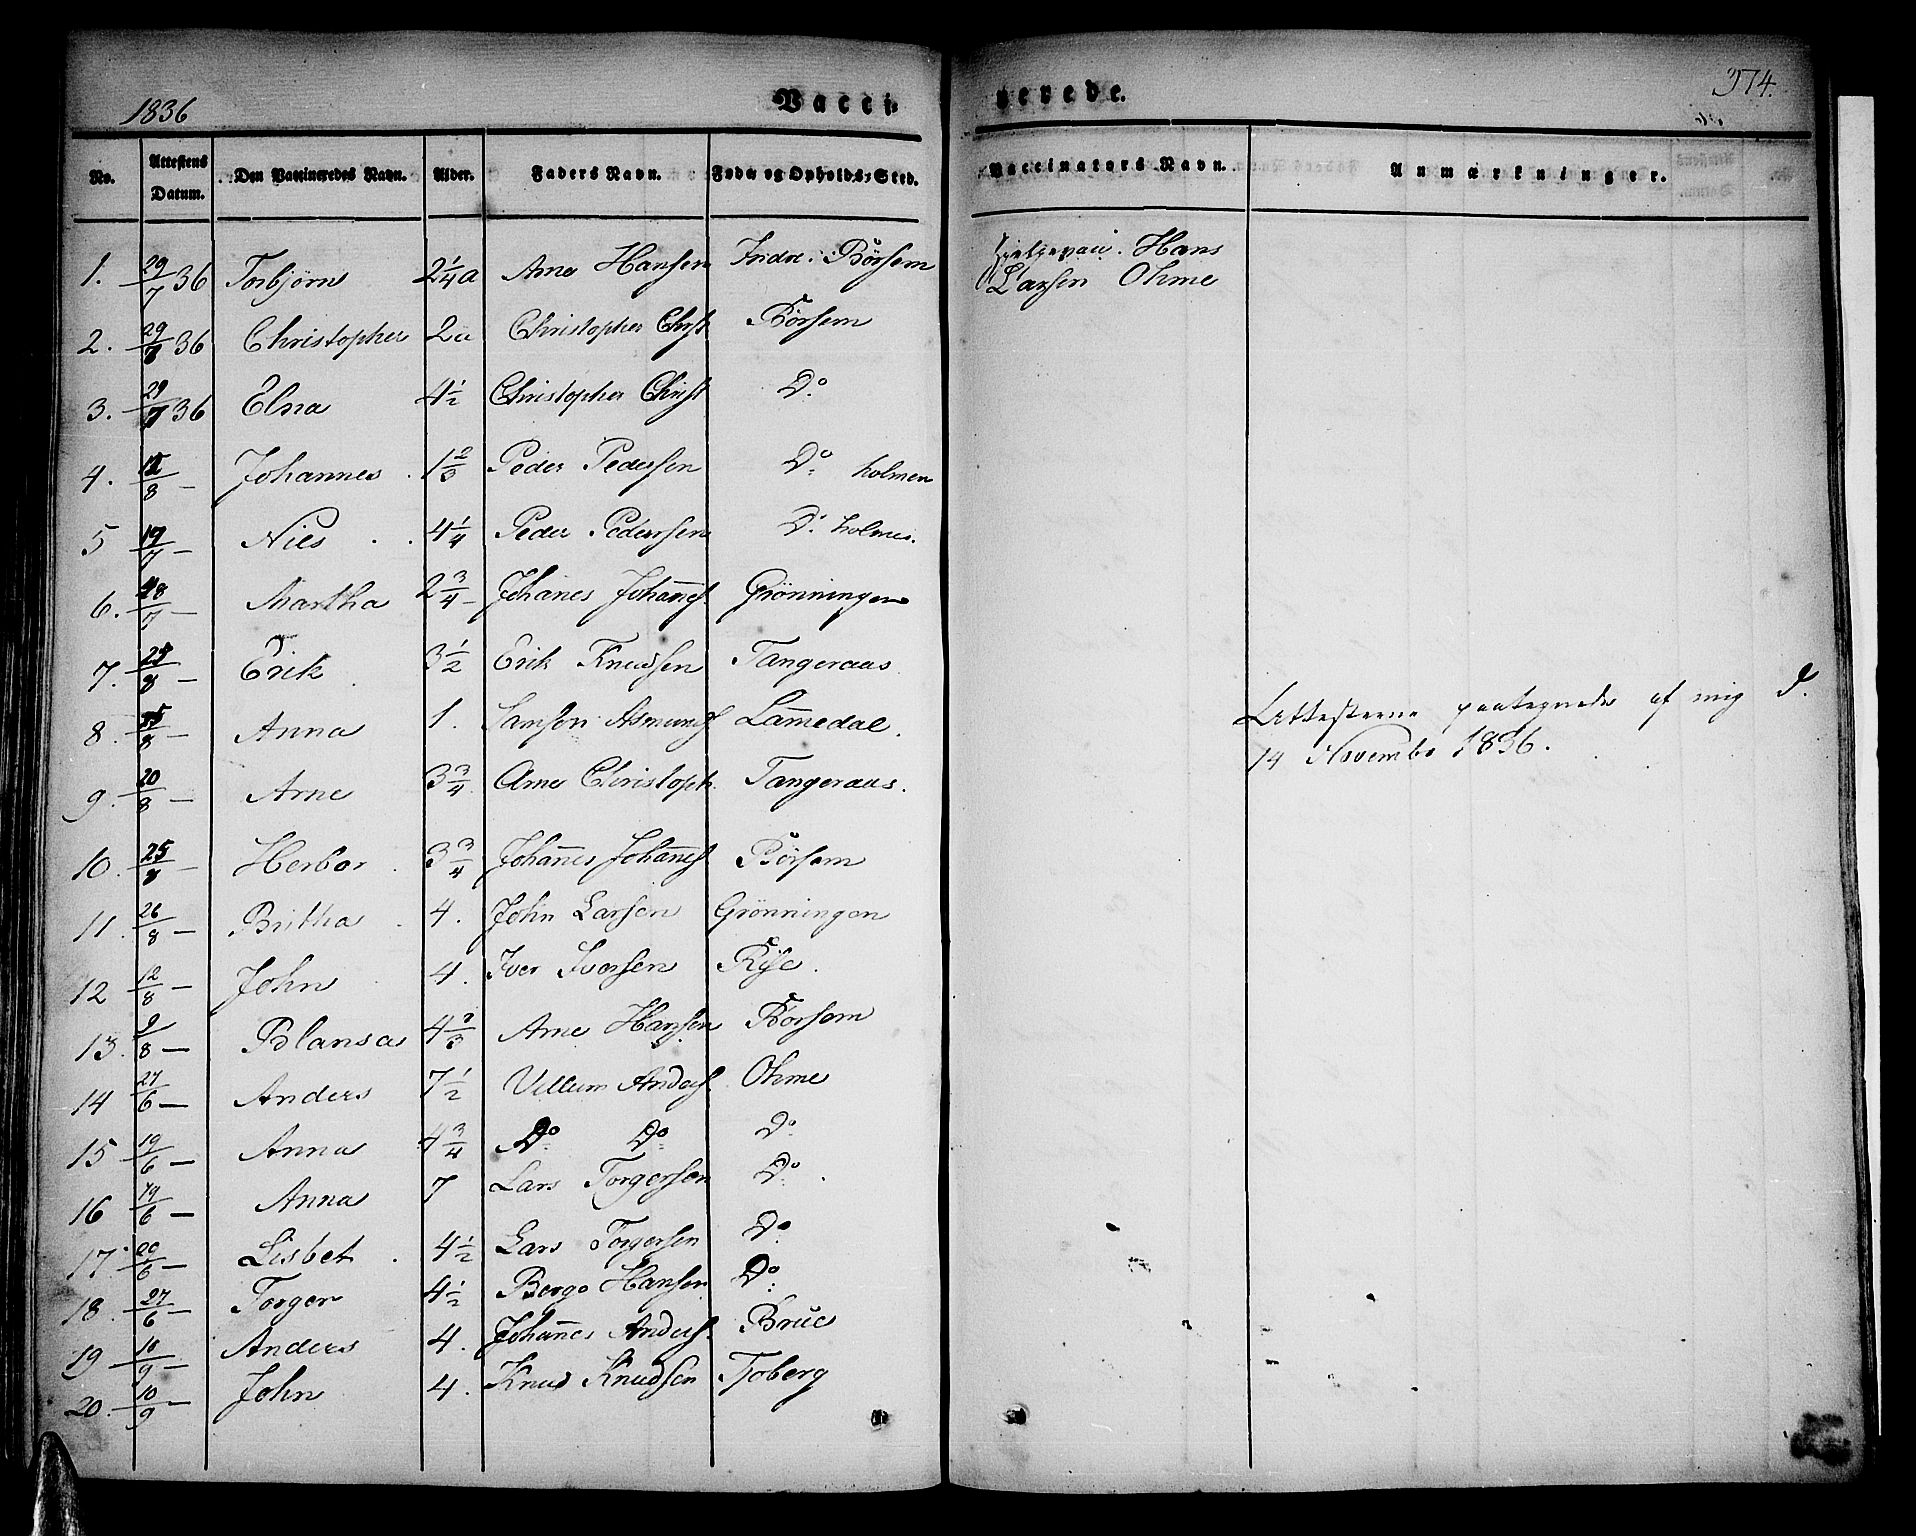 1836
Vacci-
nerede.
374.
No. Attestens Datum. Den Vaccineredes Navn. Alder. Faders Navn. Føde og Opholds-Sted. Vaccinators Navn. Anmærkninger.
1. 29/7 36 Torbjörn 2 1/4 a Arne Hansen Indre Börsem Hans
Larsen Ohme
2. 29/7 36 Christopher 2 a Christopher Christ Börsem
3. 29/7 36 Elna 4 1/2 Christopher Christ Do
4. 12/8 — Johannes 1 2/3 Peder Pedersen Do holmen
5 19/7 — Nils 4 1/4 Peder Pedersen Do holmen
6. 18/7 — Martha 2 3/4 Johanes Johannes. Grönningen
7. 25/8 — Erik 3 1/2 Erik Knudsen Tangeraas
8. 15/8 — Anna 1. Samson Asmunds Lammedal.
Attesterne paategnedes af mig d.
14 Novembr 1836.
9. 20/8 — Arne 3 3/4 Arne Christoph. Tangeraas.
10. 25/8 — Herbor 3 3/4 Johannes Johannes Börsem
11. 26/8 — Britha 4. John Larsen Grönningen
12 12/8 — John 4. Iver Iversen Rÿe.
13. 9/8 — Blansa 4 2/3 Arne Hansen Börsem
14 27/6 — Anders 7 1/2 Villum Anders. Ohme
15 19/6 — Anna 4 3/4 Do Do Do
16 19/6 — Anna 7 Lars Torgersen Do
17. 20/6 — Lisbet 4 1/2 Lars Torgersen Do
18. 27/6 — Torger 4 1/2 Berge Hansen Do
19 10/9 — Anders 4. Johannes Anders. Brue
20. 10/9 — John 4. Knud Knudsen Tjoberg